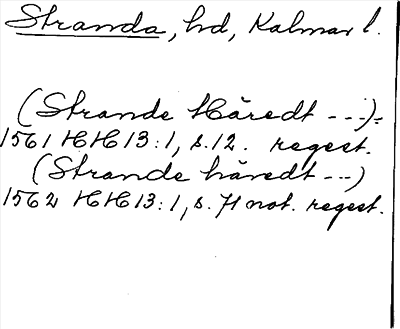 Stranda, hd, Kalmar l.
(Strande Häredt ---):
1561 HH 13:1, s. 12. regest.
(Strande häredt ---)
1562 HH 13:1, s. 71 not. regest.